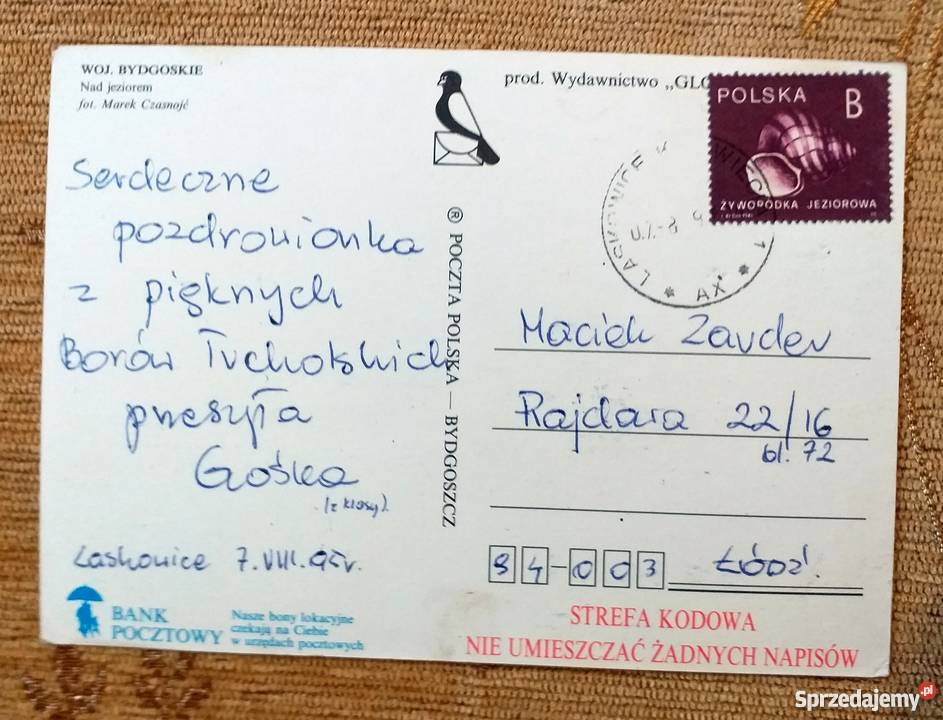 WOJ. BYDGOSKIE
Nad jeziorem
fot. Marek Czasnojć
Serdeczne
pozdrowionka
z pięknych
Borów Tucholskich
przesyła
Gośka
(z klasy).
Laskowice 7.VIII.95r.
BANK
POCZTOWY
Nasze bony lokacyjne
czekają na Ciebie
w urzędach pocztowych
® POCZTA POLSKA — BYDGOSZCZ
prod. Wydawnictwo „GLO
POLSKA B
ŻYWORÓDKA JEZIOROWA
Maciek Zauder
Rajdowa 22/16
bl. 72
94-003 Łódź.
STREFA KODOWA
NIE UMIESZCZAĆ ŻADNYCH NAPISÓW
Sprzedajemy.pl